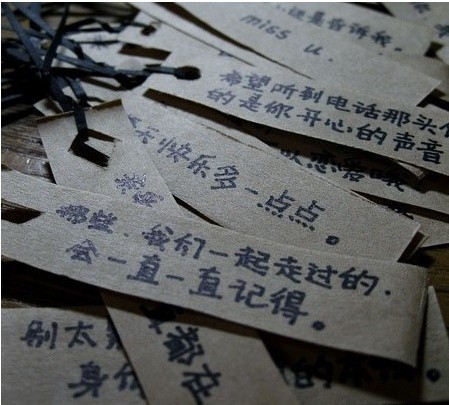 是告诉我。
miss u.
希望听到电话那头
的是你开心的声音
以恋爱哦
天快乐多一点点。
那些.我们一起走过的.
会一直一直记得。
别太
身
在
的